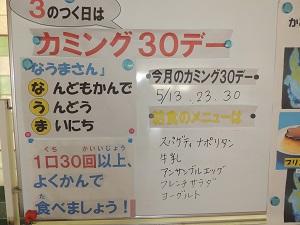 3のつく日は
カミング30デー
なうまさん」
なんどもかんで
うんどう
まいにち
1口30回以上、
よくかんで
食べましょう！
くち
かい
いじょう
た
今月のカミング30デー
5/13.23.30
給食のメニューは
スパゲティナポリタン
牛乳
アンサンブルエッグ
フレンチサラダ
ヨーグルト
プリ